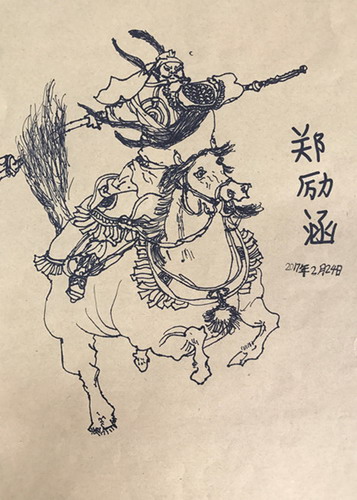 郑励涵
2017年2月24日